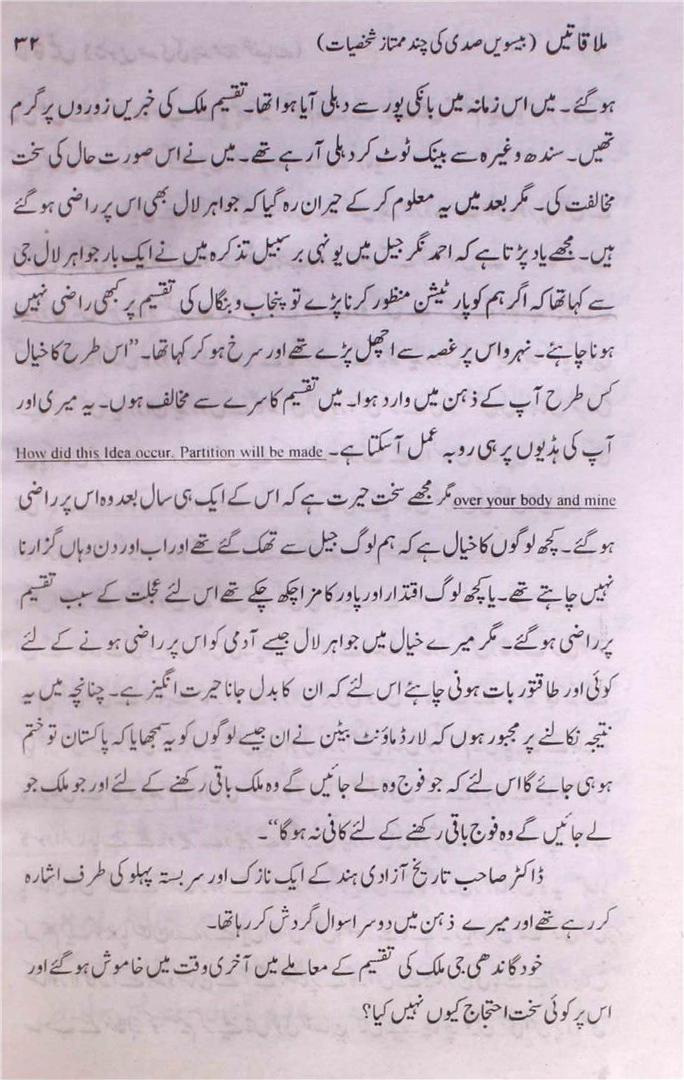 ملاقاتیں (بیسویں صدی کی چند ممتاز شخصیات) ۳۲
ہوگئے۔ میں اس زمانہ میں بانکی پور سے دہلی آیا ہوا تھا۔ تقسیم ملک کی خبریں زوروں پر گرم
تھیں۔ سندھ وغیرہ سے بینک ٹوٹ کر دہلی آرہے تھے۔ میں نے اس صورت حال کی سخت
مخالفت کی۔ مگر بعد میں یہ معلوم کر کے حیران رہ گیا کہ جواہر لال بھی اس پر راضی ہوگئے
ہیں۔ مجھے یاد پڑتا ہے کہ احمد نگر جیل میں یونہی بر سبیل تذکرہ میں نے ایک بار جواہر لال جی
سے کہا تھا کہ اگر ہم کو پارٹیشن منظور کرنا پڑے تو پنجاب و بنگال کی تقسیم پر کبھی راضی نہیں
ہونا چاہئے۔ نہرو اس پر غصہ سے اچھل پڑے تھے اور سرخ ہو کر کہا تھا۔ ”اس طرح کا خیال
کس طرح آپ کے ذہن میں وارد ہوا۔ میں تقسیم کا سرے سے مخالف ہوں۔ یہ میری اور
آپ کی ہڈیوں پر ہی روبہ عمل آسکتا ہے۔ How did this Idea occur. Partition will be made
over your body and mine مگر مجھے سخت حیرت ہے کہ اس کے ایک ہی سال بعد وہ اس پر راضی
ہوگئے۔ کچھ لوگوں کا خیال ہے کہ ہم لوگ جیل سے تھک گئے تھے اور اب اور دن وہاں گزارنا
نہیں چاہتے تھے۔ یا کچھ لوگ اقتدار اور پاور کا مزا چکھ چکے تھے اس لئے عجلت کے سبب تقسیم
پر راضی ہوگئے۔ مگر میرے خیال میں جواہر لال جیسے آدمی کو اس پر راضی ہونے کے لئے
کوئی اور طاقتور بات ہونی چاہئے اس لئے کہ ان کا بدل جانا حیرت انگیز ہے۔ چنانچہ میں یہ
نتیجہ نکالنے پر مجبور ہوں کہ لارڈ ماؤنٹ بیٹن نے ان جیسے لوگوں کو یہ سمجھایا کہ پاکستان تو ختم
ہو ہی جائے گا اس لئے کہ جو فوج وہ لے جائیں گے وہ ملک باقی رکھنے کے لئے اور جو ملک جو
لے جائیں گے وہ فوج باقی رکھنے کے لئے کافی نہ ہوگا“۔
ڈاکٹر صاحب تاریخ آزادی ہند کے ایک نازک اور سربستہ پہلو کی طرف اشارہ
کررہے تھے اور میرے ذہن میں دوسرا سوال گردش کررہا تھا۔
خود گاندھی جی ملک کی تقسیم کے معاملے میں آخری وقت میں خاموش ہوگئے اور
اس پر کوئی سخت احتجاج کیوں نہیں کیا؟